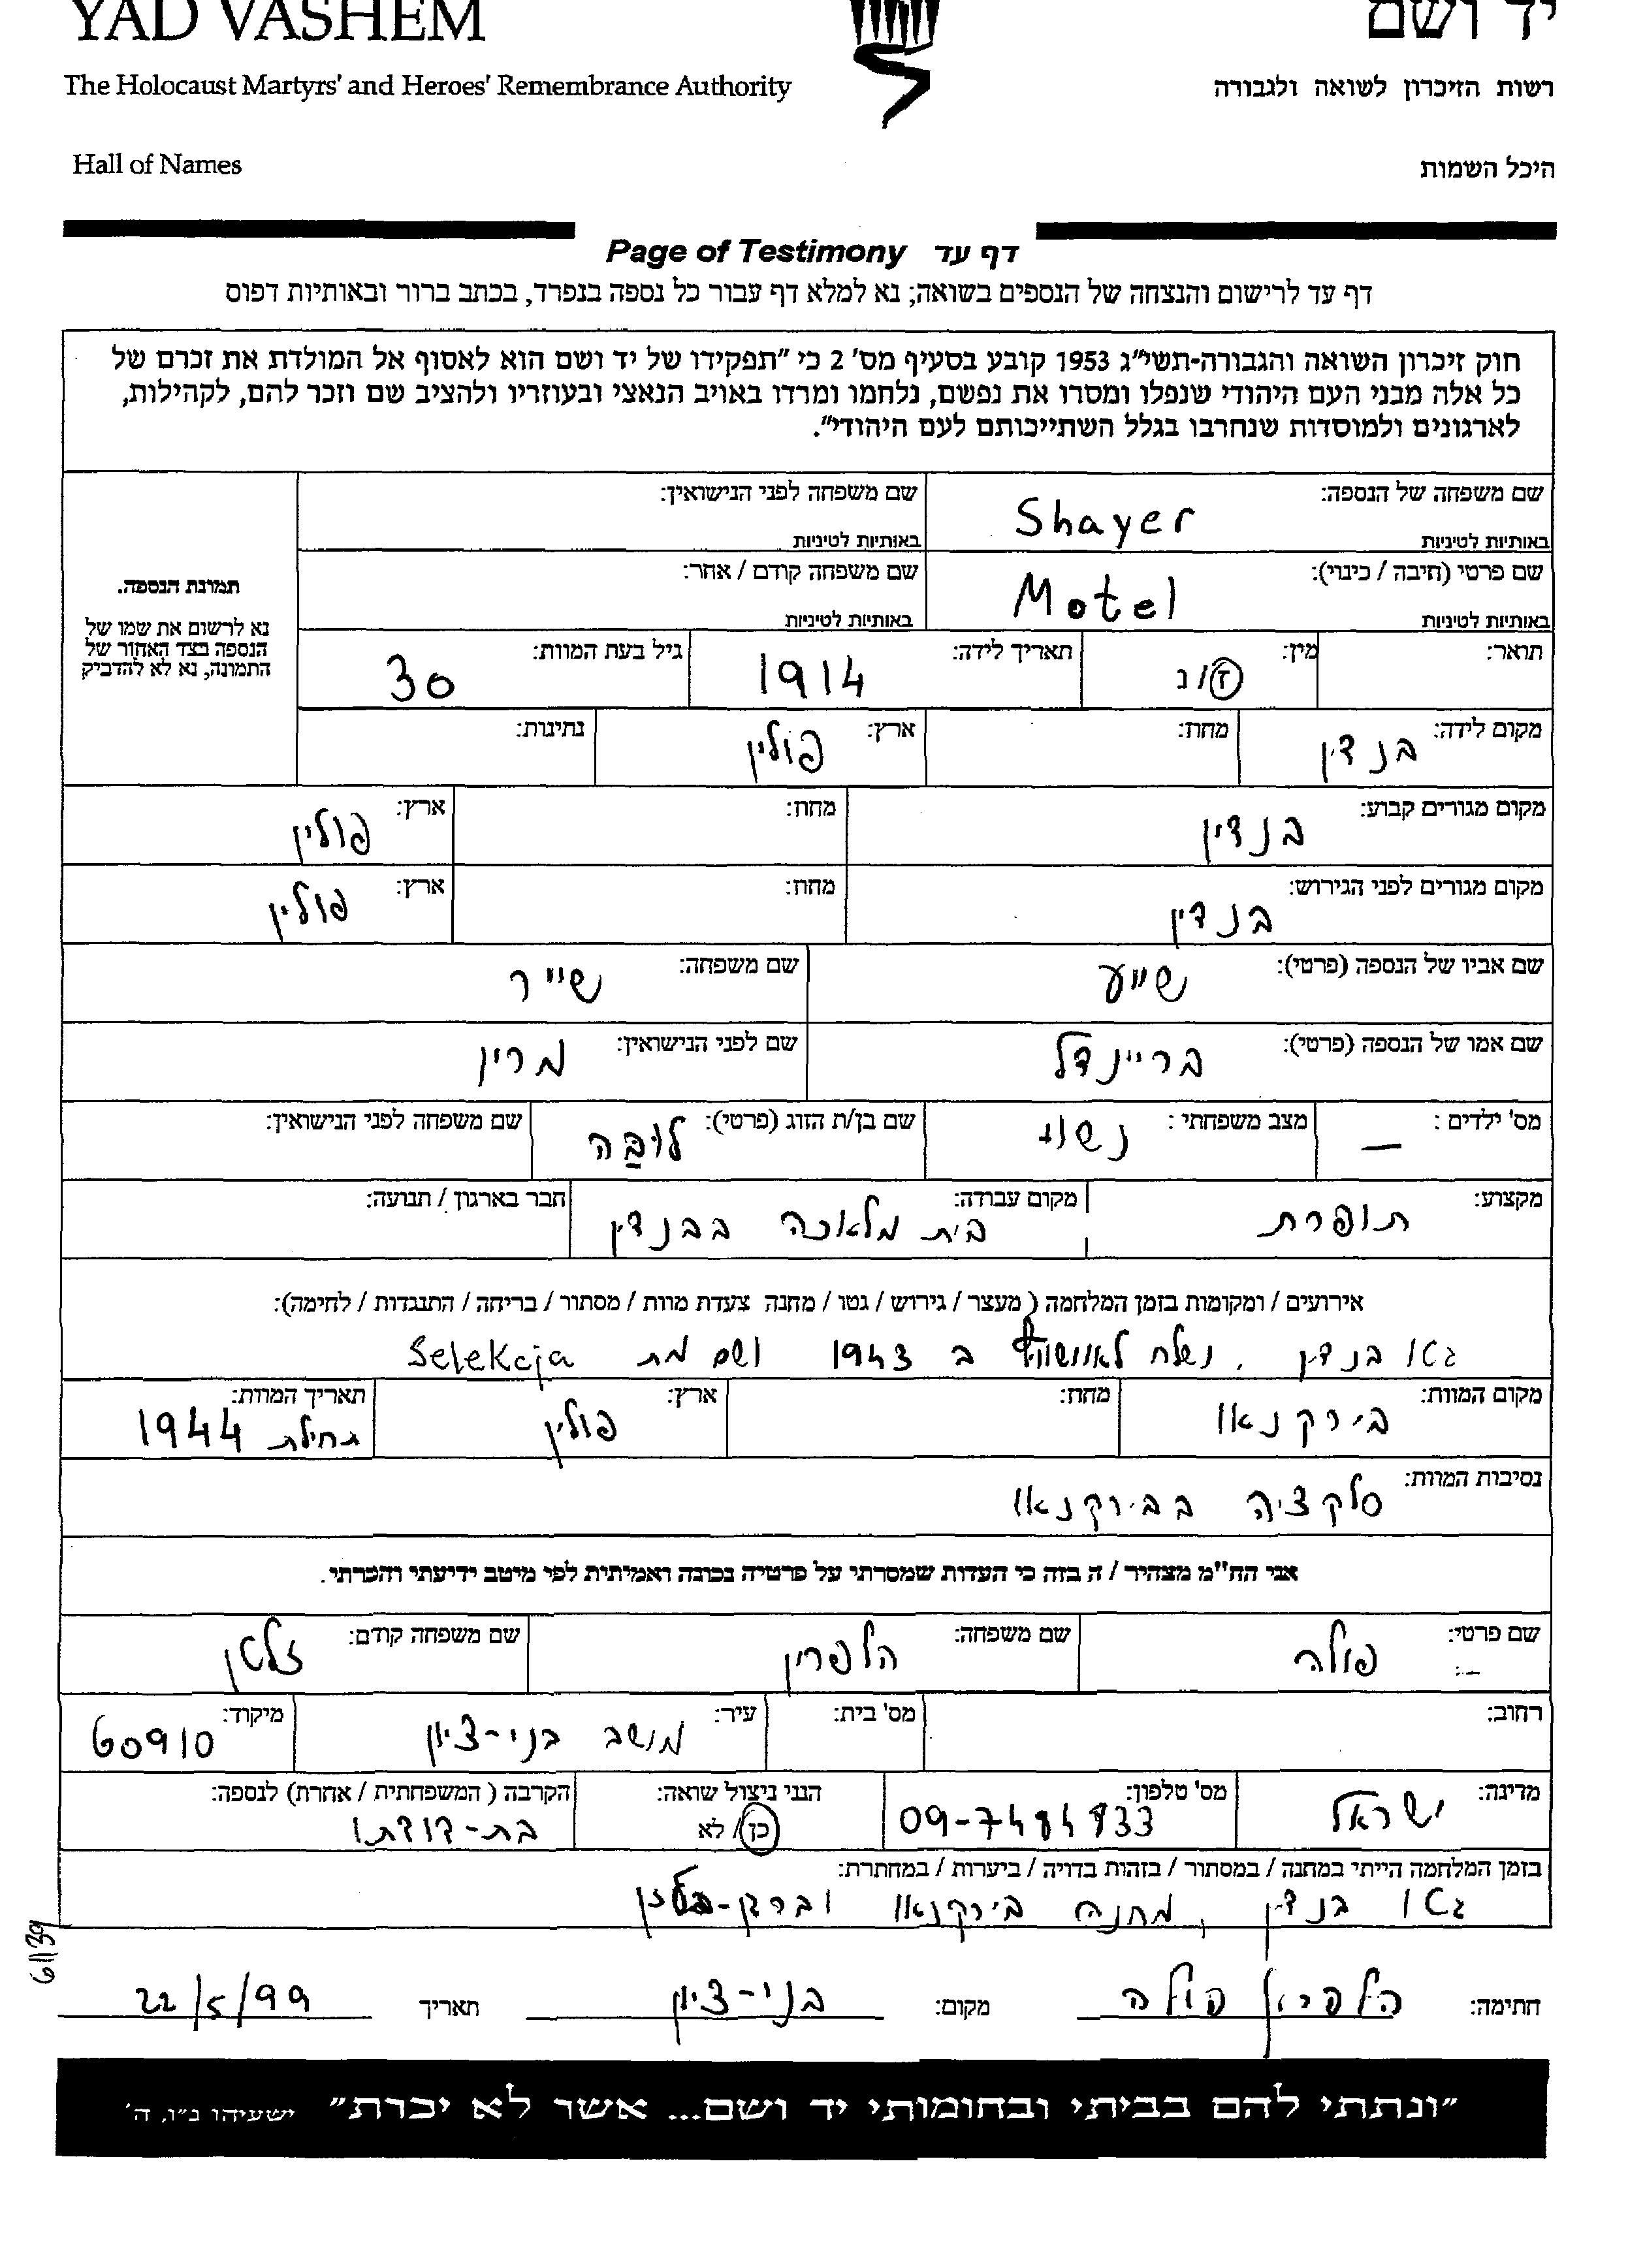 YAD VASHEM יד ושם
The Holocaust Martyrs' and Heroes' Remembrance Authority רשות הזיכרון לשואה ולגבורה
Hall of Names היכל השמות
Page of Testimony דף עד
דף עד לרישום והנצחה של הנספים בשואה; נא למלא דף עבור כל נספה בנפרד, בכתב ברור ובאותיות דפוס
חוק זיכרון השואה והגבורה-תשי"ג 1953 קובע בסעיף מס' 2 כי "תפקידו של יד ושם הוא לאסוף אל המולדת את זכרם של
כל אלה מבני העם היהודי שנפלו ומסרו את נפשם, נלחמו ומרדו באויב הנאצי ובעוזריו ולהציב שם וזכר להם, לקהילות,
לארגונים ולמוסדות שנחרבו בגלל השתייכותם לעם היהודי".
שם משפחה של הנספה: Shayer שם משפחה לפני הנישואין:
באותיות לטיניות באותיות לטיניות
שם פרטי (חיבה / כינוי): Motel שם משפחה קודם / אחר:
באותיות לטיניות באותיות לטיניות
תמונת הנספה.
נא לרשום את שמו של
הנספה בצד האחור של
התמונה, נא לא להדביק
תואר: מין: ז/נ תאריך לידה: 1914 גיל בעת המוות: 30
מקום לידה: בנדין מחוז: ארץ: פולין נתינות:
מקום מגורים קבוע: בנדין מחוז: ארץ: פולין
מקום מגורים לפני הגירוש: בנדין מחוז: ארץ: פולין
שם אביו של הנספה (פרטי): שייע שם משפחה: שייר
שם אמו של הנספה (פרטי): בריינדל שם לפני הנישואין: מרין
מס' ילדים: — מצב משפחתי: נשוי שם בן/ת הזוג (פרטי): לובה שם משפחה לפני הנישואין:
מקצוע: תופרת מקום עבודה: בית מלאכה בבנדין חבר בארגון / תנועה:
אירועים / ומקומות בזמן המלחמה ( מעצר / גירוש / גטו / מחנה צעדת מוות / מסתור / בריחה / התנגדות / לחימה):
גטו בנדין, נשלח לאושוויץ ב 1943 ושם מת Selekcja
מקום המוות: בירקנאו מחוז: ארץ: פולין תאריך המוות: תחילת 1944
נסיבות המוות: סלקציה בבירקנאו
אני הח"מ מצהיר / ה בזה כי העדות שמסרתי על פרטיה נכונה ואמיתית לפי מיטב ידיעתי והכרתי.
שם פרטי: פולה שם משפחה: הלפרין שם משפחה קודם: זלטן
רחוב: מס' בית: עיר: מושב בני-ציון מיקוד: 60910
מדינה: ישראל מס' טלפון: 09-7484833 הנני ניצול שואה: כן / לא הקרבה ( המשפחתית / אחרת) לנספה: בת-דודתו
בזמן המלחמה הייתי במחנה / במסתור / בזהות בדויה / ביערות / במחתרת:
גטו בנדין, מחנה בירקנאו וברגן-בלזן
61139
חתימה: הלפרין פולה מקום: בני-ציון תאריך 22/5/99
"ונתתי להם בביתי ובחומותי יד ושם... אשר לא יכרת" ישעיהו נ"ו, ה'